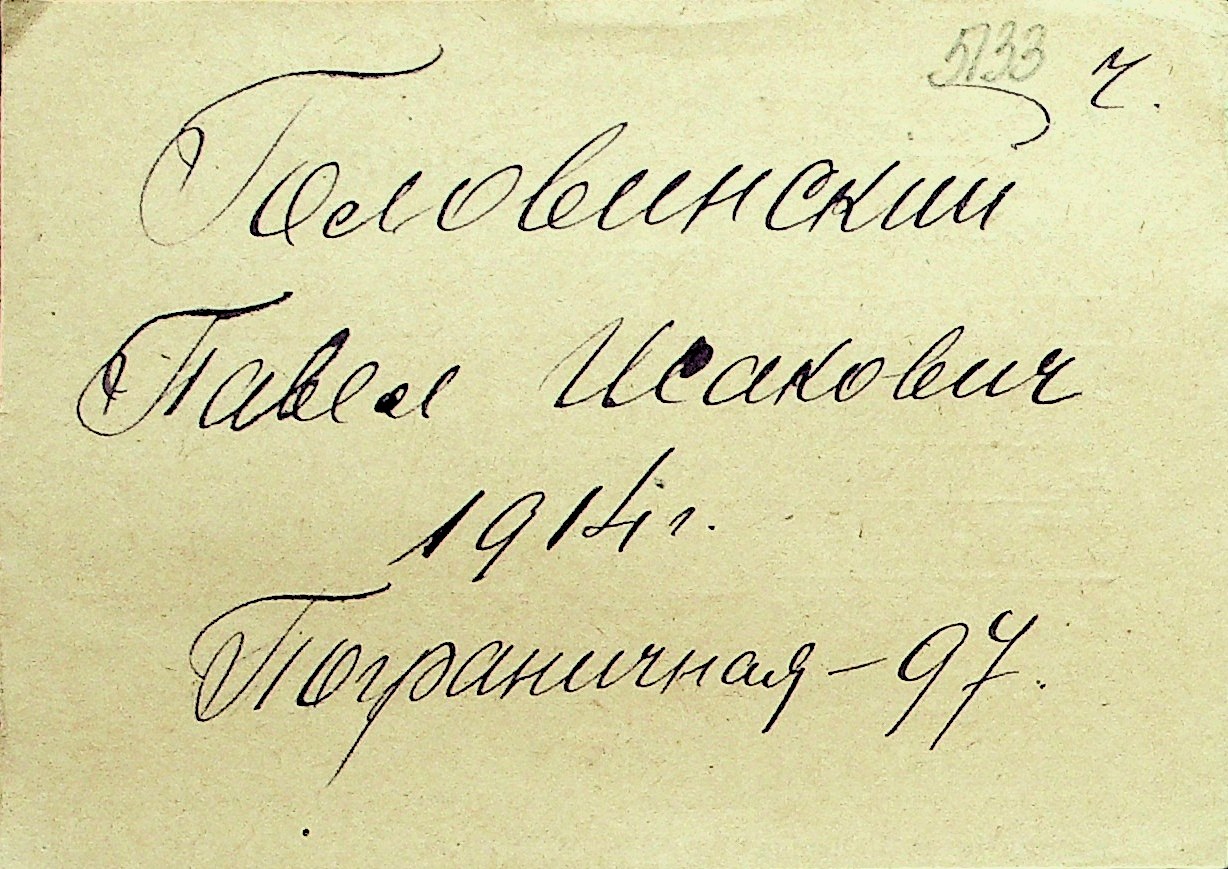 5133 ч.
Головинский
Павел Исакович
1914 г.
Пограничная – 97.